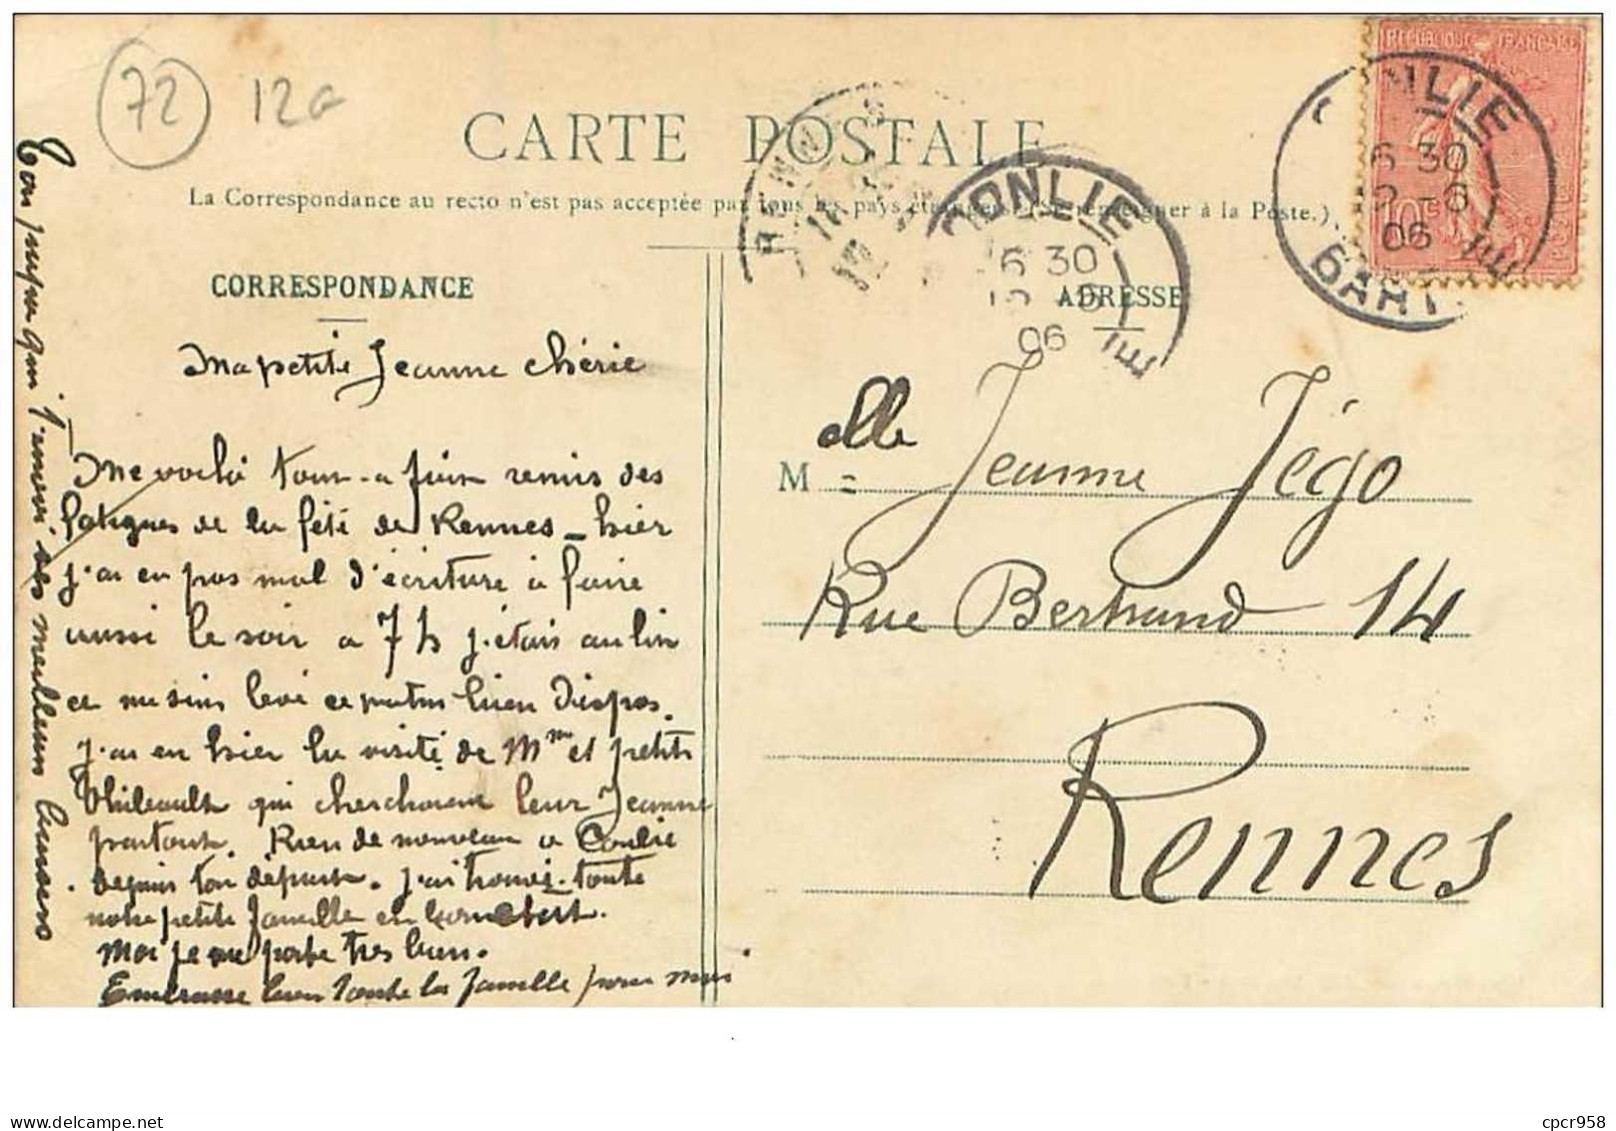 72 12a
CARTE POSTALE
La Correspondance au recto n'est pas acceptée par tous les pays étrangers (Se renseigner à la Poste.)
RENNES
CONLIE
6 30
06
CONLIE
6 30
06
SARTHE
REPUBLIQUE FRANÇAISE
10c
CORRESPONDANCE
ADRESSE
Ma petite Jeanne chérie
Me voilà tout-a fait remis des
fatigues de la fête de Rennes _ hier
j'ai eu pas mal d'écriture à faire
aussi le soir a 7 h j'étais au lit
ce matin levé et bien dispos.
j'ai eu hier la visite de Mme et petits
Thibeault qui cherchaient leur Jeanne
partout. Rien de nouveau a Conlie
depuis ton départ. j'ai trouvé toute
notre petite famille en
Moi je me porte tres bien.
Embrasse bien toute la famille pour moi
Ton qui t'envoi ses meilleurs baisers
M elle Jeanne Jégo
Rue Bertrand 14
Rennes
delcampe.net
cpcr958